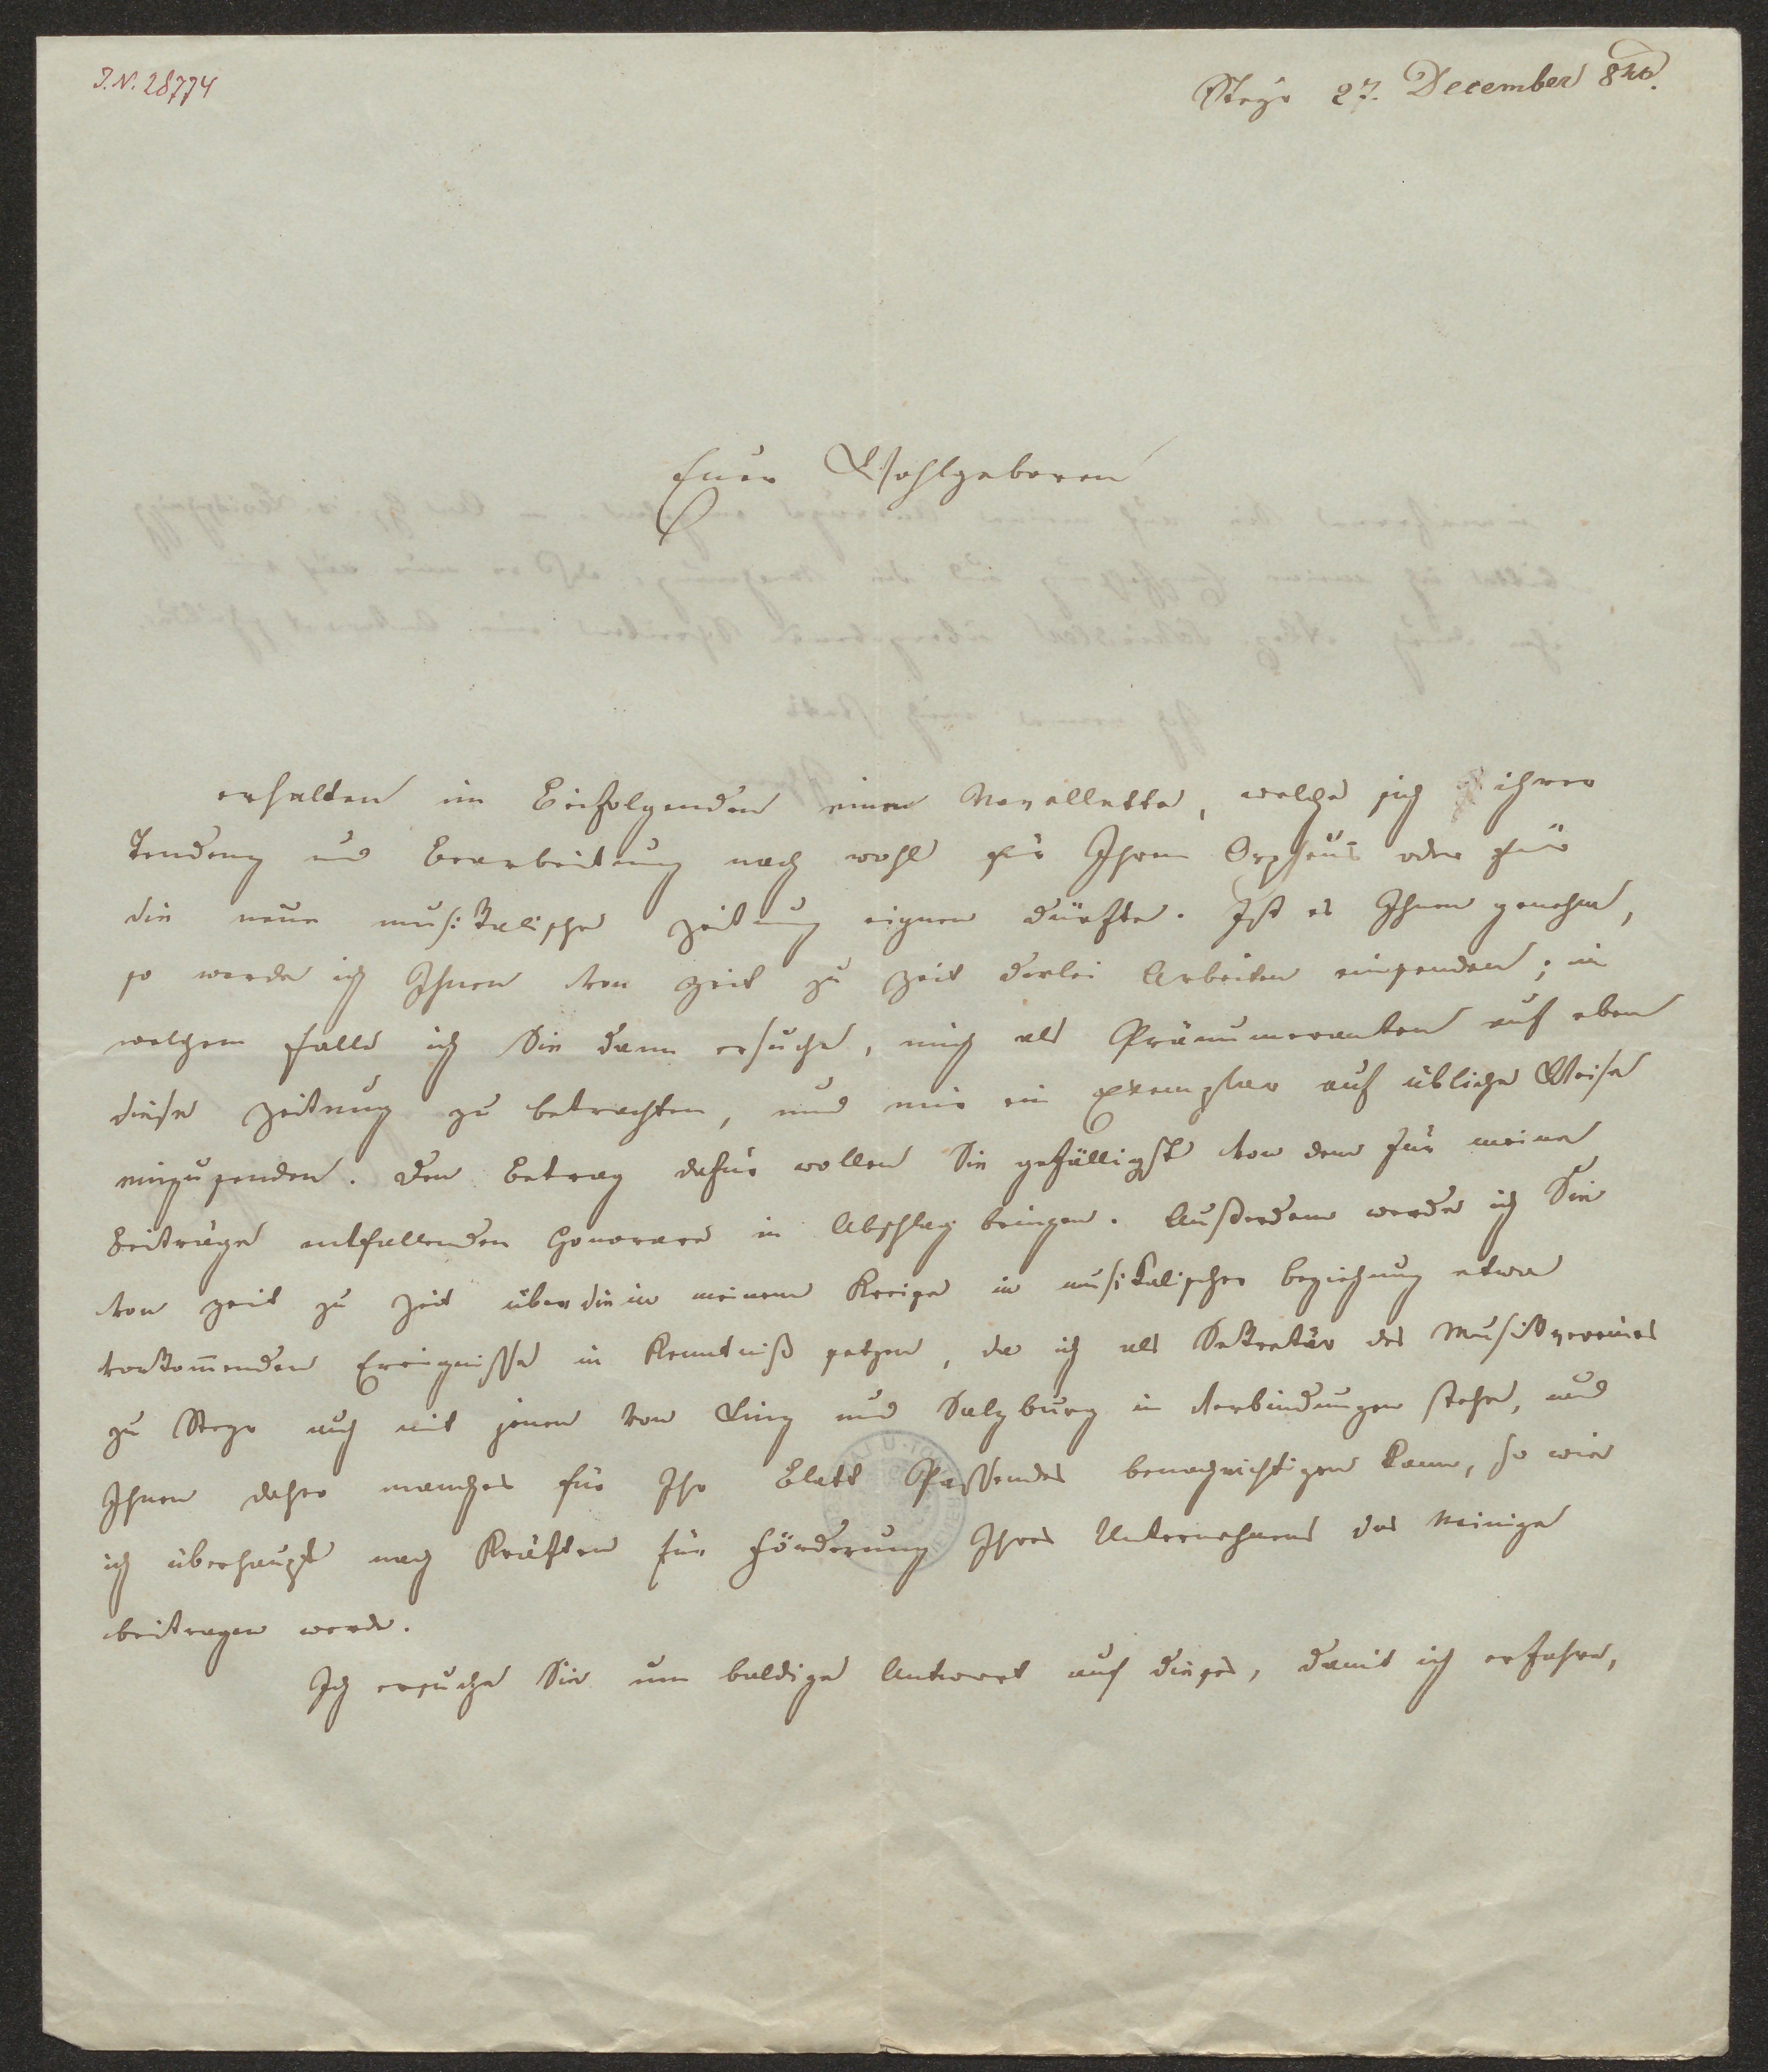 I.N. 28774
Steyr 27. December 840.
Euer Wohlgeboren
erhalten im Beifolgenden eine Novellette, welche sich ihrer
Tendenz und Bearbeitung nach wohl für Ihren Orpheus oder für
die neue musikalische Zeitung eignen dürfte. Ist es Ihnen genehm,
so werde ich Ihnen von Zeit zu Zeit derlei Arbeiten einsenden; in
welchem Falle ich Sie dann ersuche, mich als Pränumeranten auf eben
diese Zeitung zu betrachten, und mir ein Exemplar auf übliche Weise
einzusenden. Den Betrag dafür wollen Sie gefälligst von dem für meine
Beiträge entfallenden Honorare in Abschlag bringen. Außerdem werde ich Sie
von Zeit zu Zeit über die in meinem Kreise in musikalischer Beziehung etwa
vorkommenden Ereignisse in Kenntniß setzen, da ich als Sekretär des Musikvereines
zu Steyr auch mit jenen von Linz und Salzburg in Verbindungen stehe, und
Ihnen daher manches für Ihr Blatt Passendes benachrichtigen kann, so wie
ich überhaupt nach Kräften für Förderung Ihres Unternehmens das Meinige
beitragen werde.
Ich ersuche Sie um baldige Antwort auf dieses, damit ich erfahre,